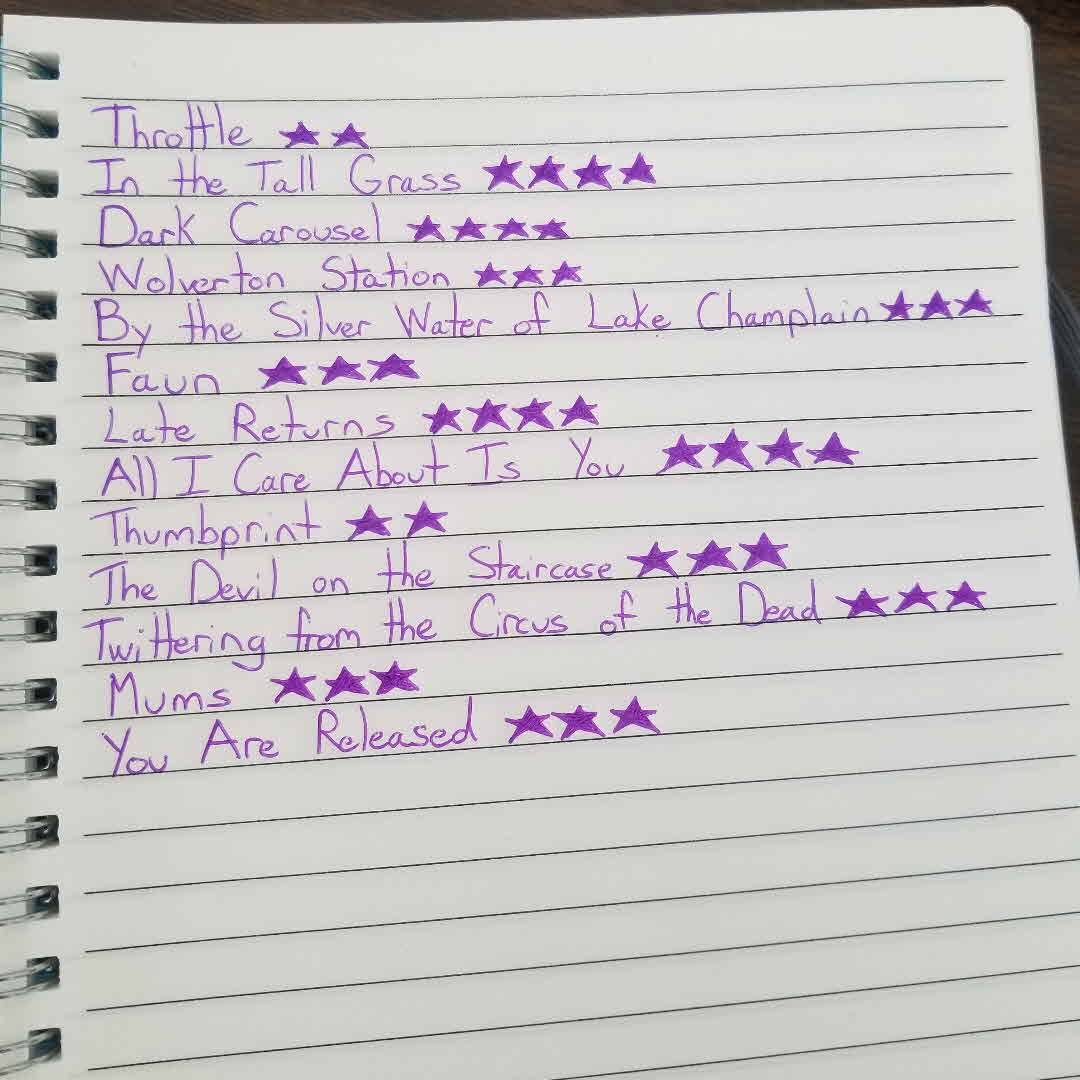 Throttle ★★
In the Tall Grass ★★★★
Dark Carousel ★★★★
Wolverton Station ★★★
By the Silver Water of Lake Champlain ★★★
Faun ★★★
Late Returns ★★★★
All I Care About Is You ★★★★
Thumbprint ★★
The Devil on the Staircase ★★★
Twittering from the Circus of the Dead ★★★
Mums ★★★
You Are Released ★★★